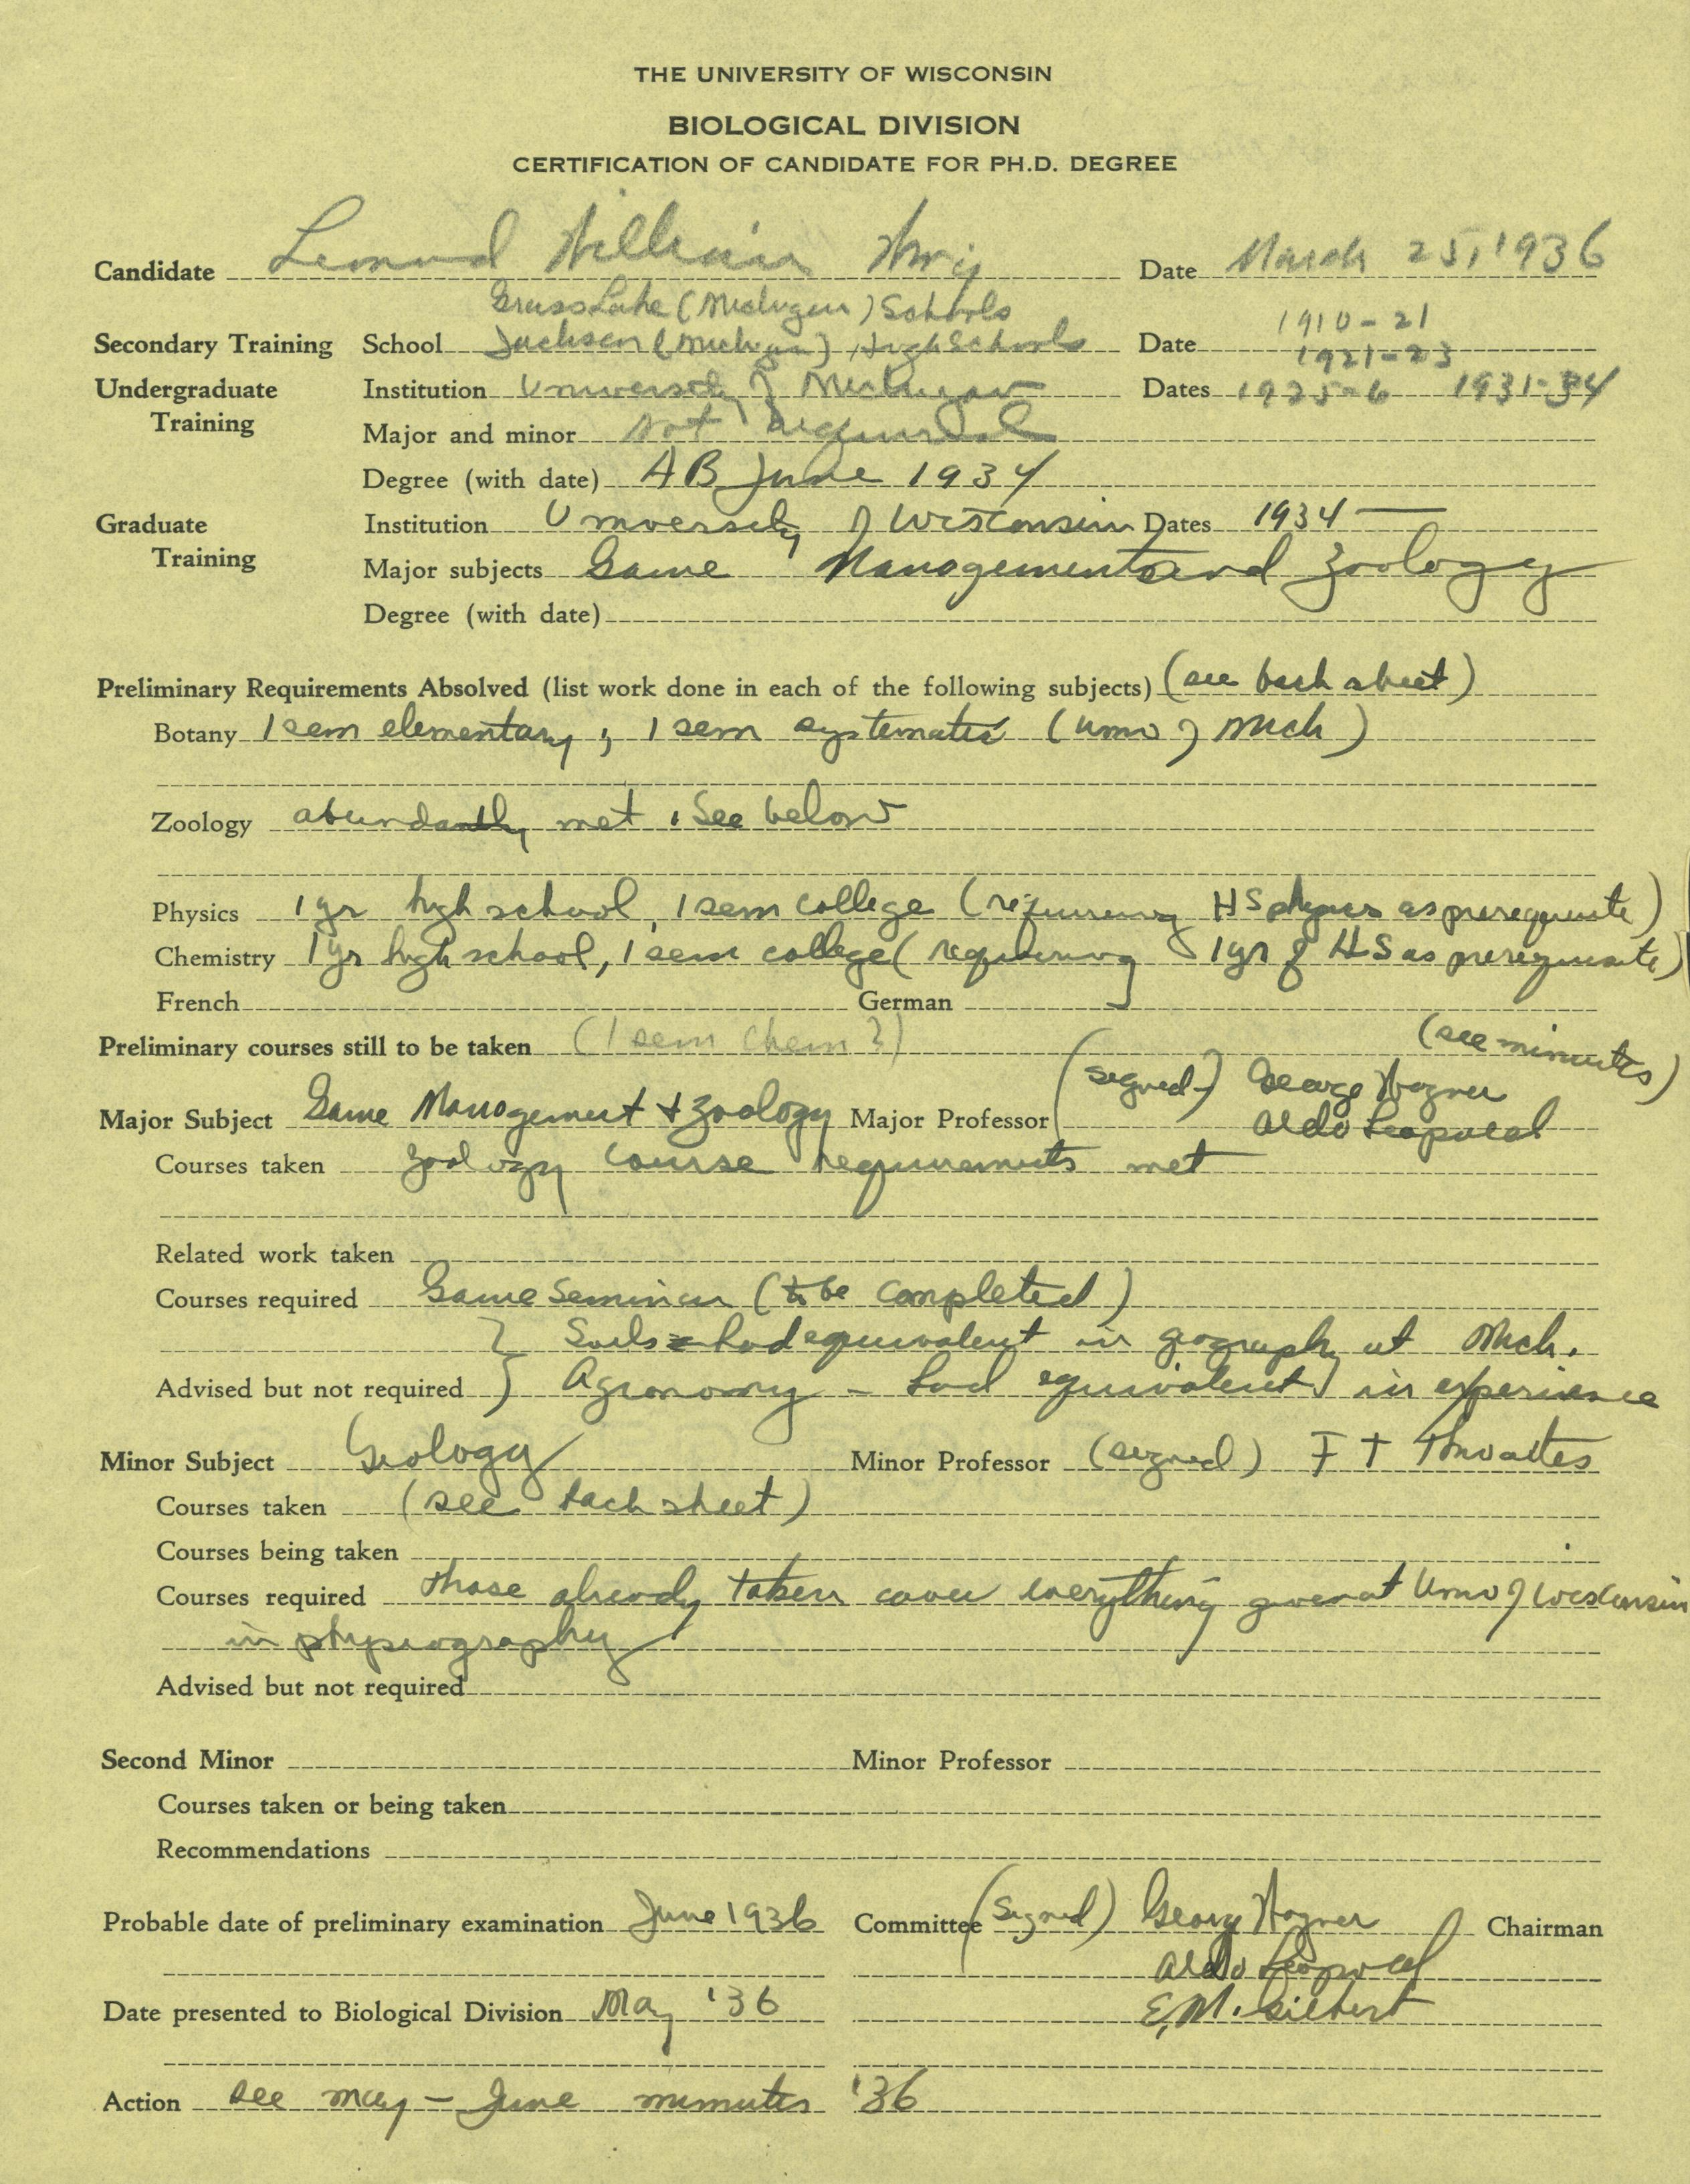 THE UNIVERSITY OF WISCONSIN
BIOLOGICAL DIVISION
CERTIFICATION OF CANDIDATE FOR PH.D. DEGREE
Candidate Leonard William Wing Date March 25, 1936
Grass Lake (Michigan) Schools 1910-21
Secondary Training School Jackson (Michigan) High Schools Date 1921-23
Undergraduate Institution University of Michigan Dates 1925-6 1931-34
Training Major and minor not required
Degree (with date) AB June 1934
Graduate Institution University of Wisconsin Dates 1934 —
Training Major subjects Game Management and Zoology
Degree (with date)
Preliminary Requirements Absolved (list work done in each of the following subjects) (see back sheet)
Botany 1 sem elementary; 1 sem systematic (Univ of Mich)
Zoology abundantly met. See below
Physics 1 yr high school, 1 sem college (requiring HS physics as prerequisite)
Chemistry 1 yr high school, 1 sem college (requiring 1 yr of HS as prerequisite)
French German
Preliminary courses still to be taken (1 sem chem?) (see minutes)
Major Subject Game Management & Zoology Major Professor (signed) George Wagner
Aldo Leopold
Courses taken Zoology course requirements met
Related work taken
Courses required Game Seminar (to be completed)
Soils = had equivalent in geography at Mich.
Advised but not required Agronomy - had equivalent in experience
Minor Subject Geology Minor Professor (signed) F T Thwaites
Courses taken (see back sheet)
Courses being taken
Courses required Those already taken cover everything given at Univ of Wisconsin
in physiography
Advised but not required
Second Minor Minor Professor
Courses taken or being taken
Recommendations
Probable date of preliminary examination June 1936 Committee (signed) George Wagner Chairman
Aldo Leopold
Date presented to Biological Division May '36 E.M. Gilbert
Action see may - June minutes '36